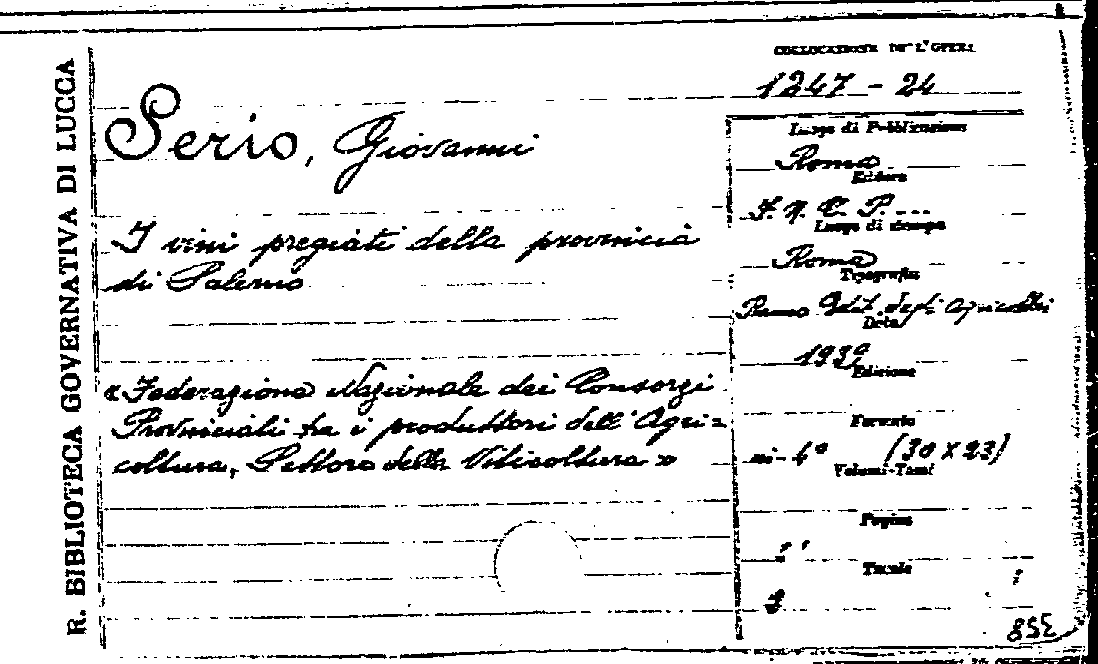 R. BIBLIOTECA GOVERNATIVA DI LUCCA
COLLOCAZIONE DELL'OPERA
1247 - 24
Serio, Giovanni
I vini pregiati della provincia
di Salerno
« Federazione Nazionale dei Consorzi
Provinciali tra i produttori dell'Agri=
coltura, Settore della Viticoltura »
Luogo di Pubblicazione
Roma
Editore
F. N. C. P. ...
Luogo di stampa
Roma
Tipografia
Ramo Edit. degli Agricoltori
Data
1939
Edizione
Formato
in-4° (30 X 23)
Volumi-Tomi
Pagine
Tavole
358